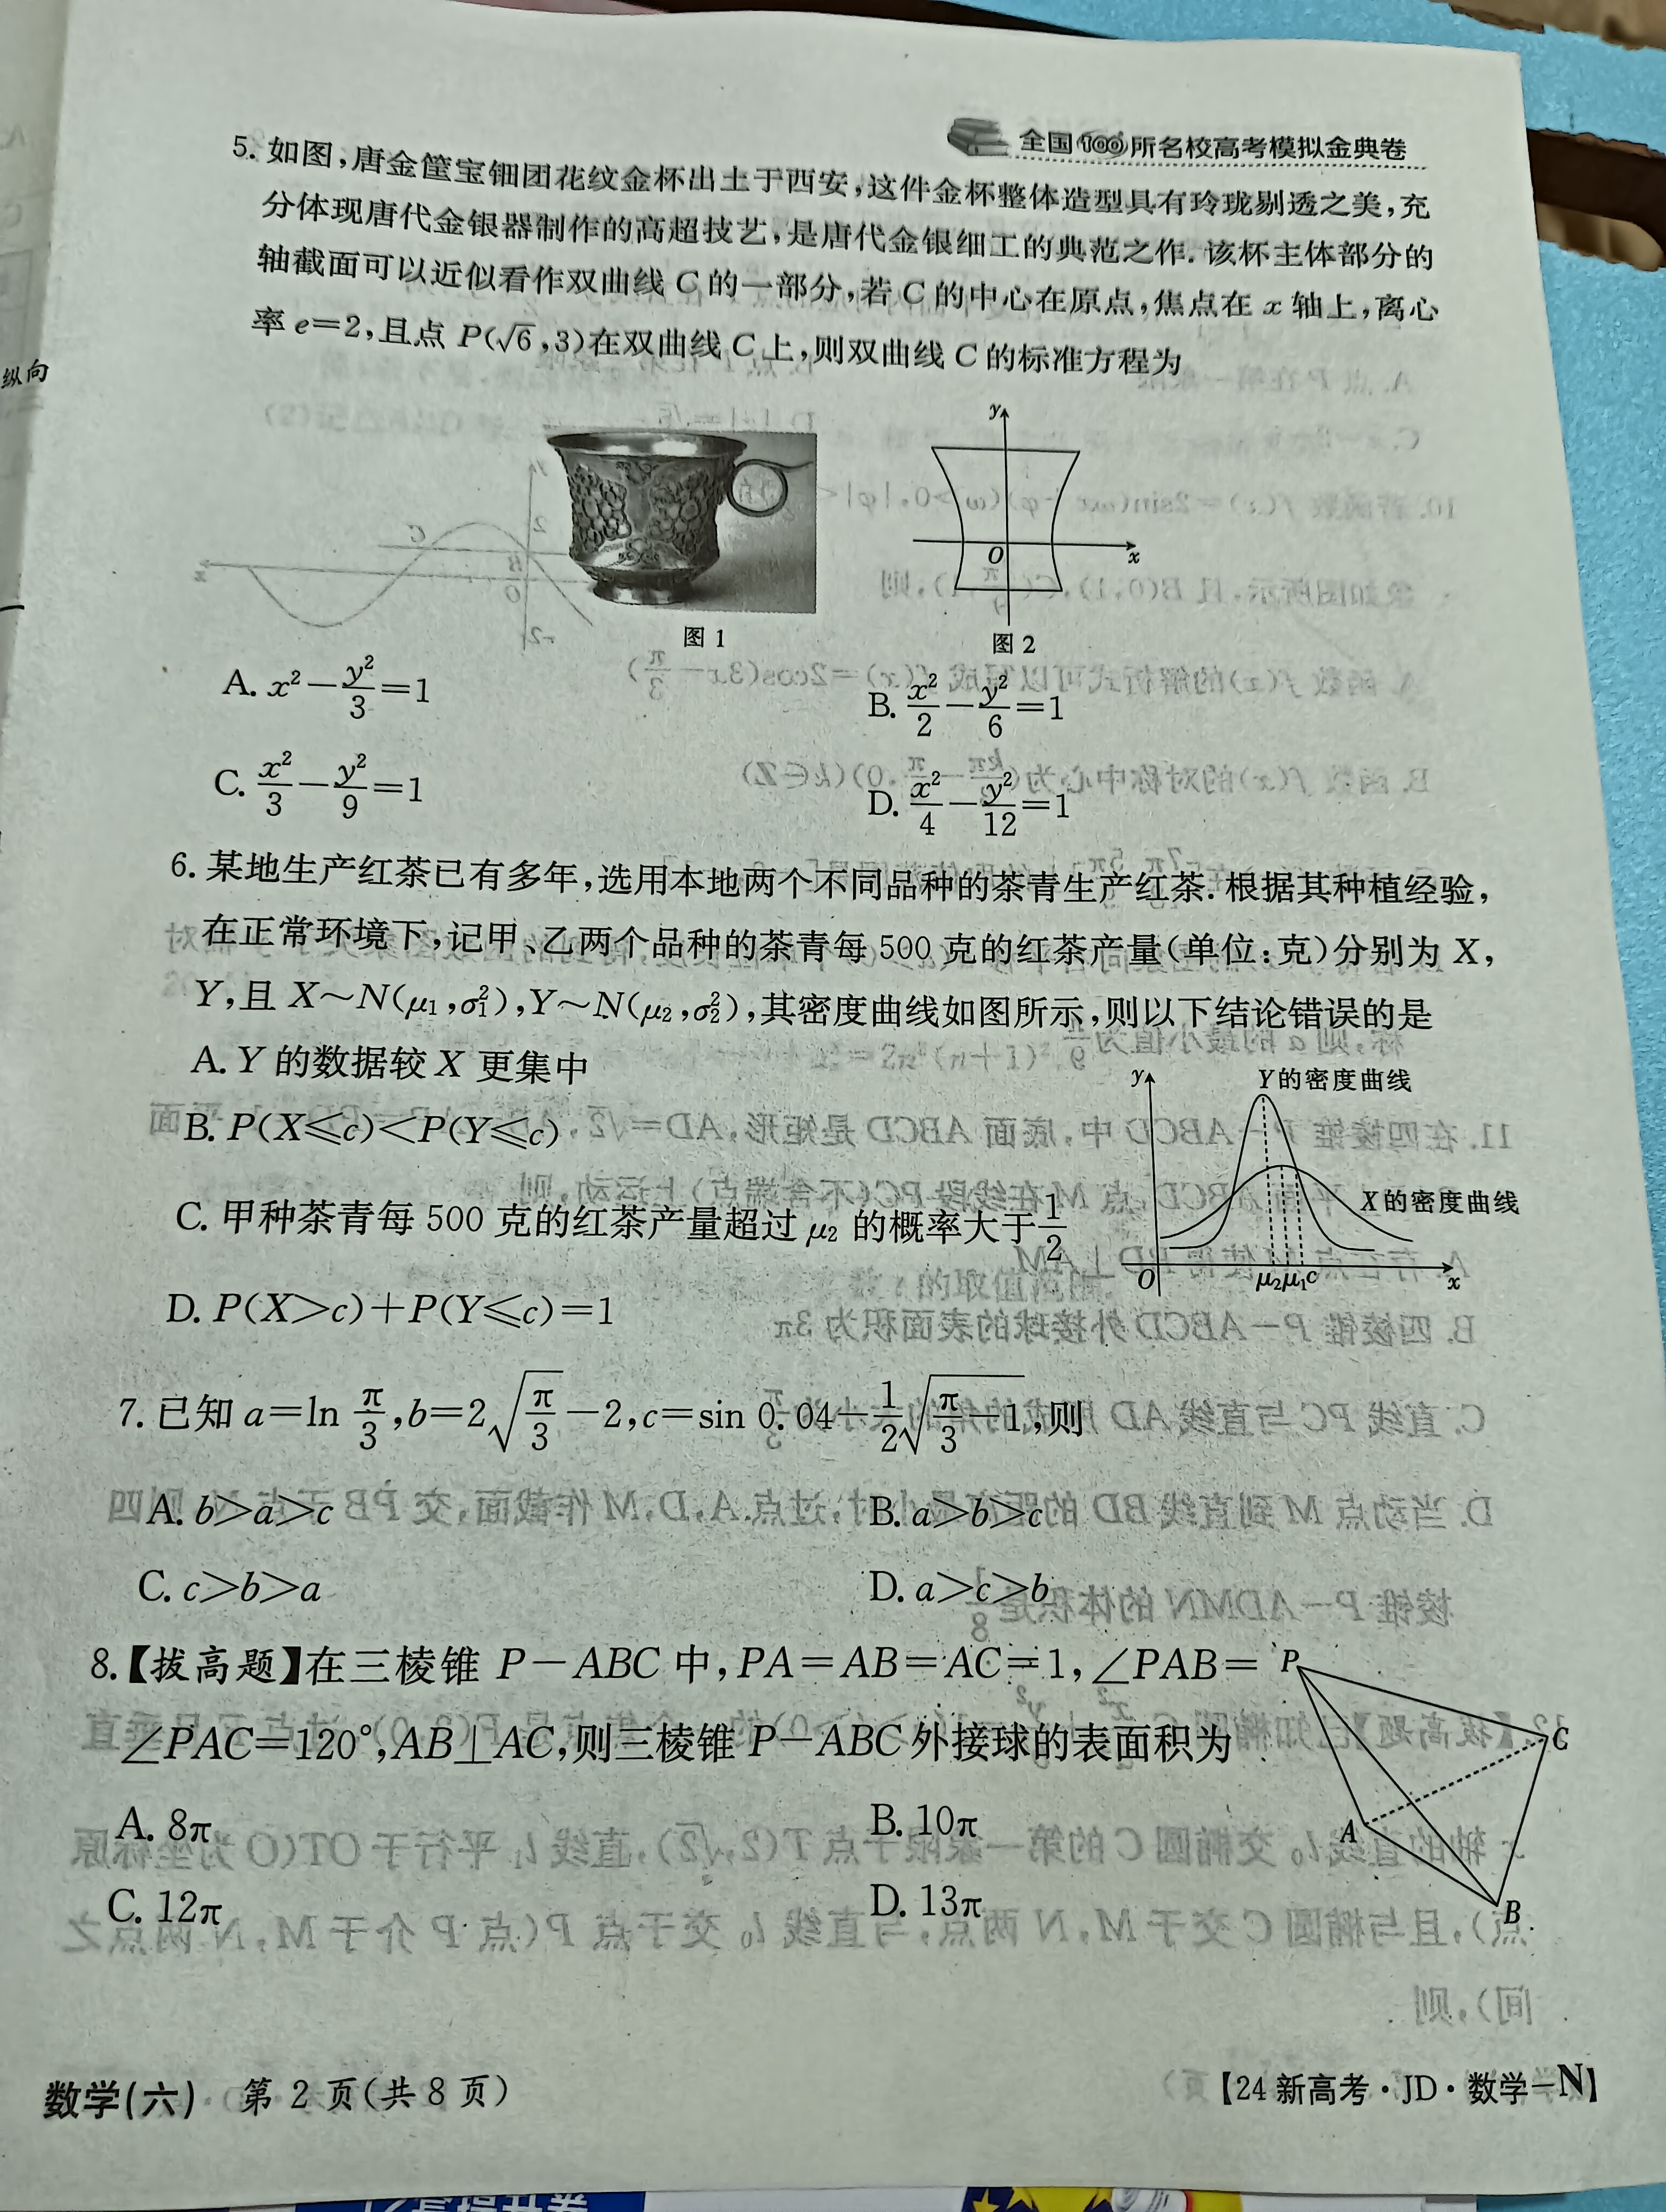 全国100所名校高考模拟金典卷
5. 如图,唐金筐宝钿团花纹金杯出土于西安,这件金杯整体造型具有玲珑剔透之美,充
分体现唐代金银器制作的高超技艺,是唐代金银细工的典范之作. 该杯主体部分的
轴截面可以近似看作双曲线 C 的一部分,若 C 的中心在原点,焦点在 x 轴上,离心
率 e=2,且点 P(√6,3)在双曲线 C 上,则双曲线 C 的标准方程为
纵向
y
O
x
图 1
图 2
A. x²−y²/3=1
B. x²/2−y²/6=1
C. x²/3−y²/9=1
D. x²/4−y²/12=1
6. 某地生产红茶已有多年,选用本地两个不同品种的茶青生产红茶. 根据其种植经验,
在正常环境下,记甲、乙两个品种的茶青每 500 克的红茶产量(单位:克)分别为 X,
Y,且 X~N(μ₁,σ₁²),Y~N(μ₂,σ₂²),其密度曲线如图所示,则以下结论错误的是
A. Y 的数据较 X 更集中
B. P(X⩽c)<P(Y⩽c)
C. 甲种茶青每 500 克的红茶产量超过 μ₂ 的概率大于1/2
D. P(X>c)+P(Y⩽c)=1
y
Y的密度曲线
X的密度曲线
O
μ₂μ₁c
x
7. 已知 a=ln π/3,b=2√(π/3)−2,c=sin 0.04−1/2√(π/3−1),则
A. b>a>c
B. a>b>c
C. c>b>a
D. a>c>b
8.【拔高题】在三棱锥 P−ABC 中,PA=AB=AC=1,∠PAB=
∠PAC=120°,AB⊥AC,则三棱锥 P−ABC 外接球的表面积为
A. 8π
B. 10π
C. 12π
D. 13π
P
C
A
B
数学(六) 第 2 页(共 8 页)
【24 新高考·JD·数学−N】